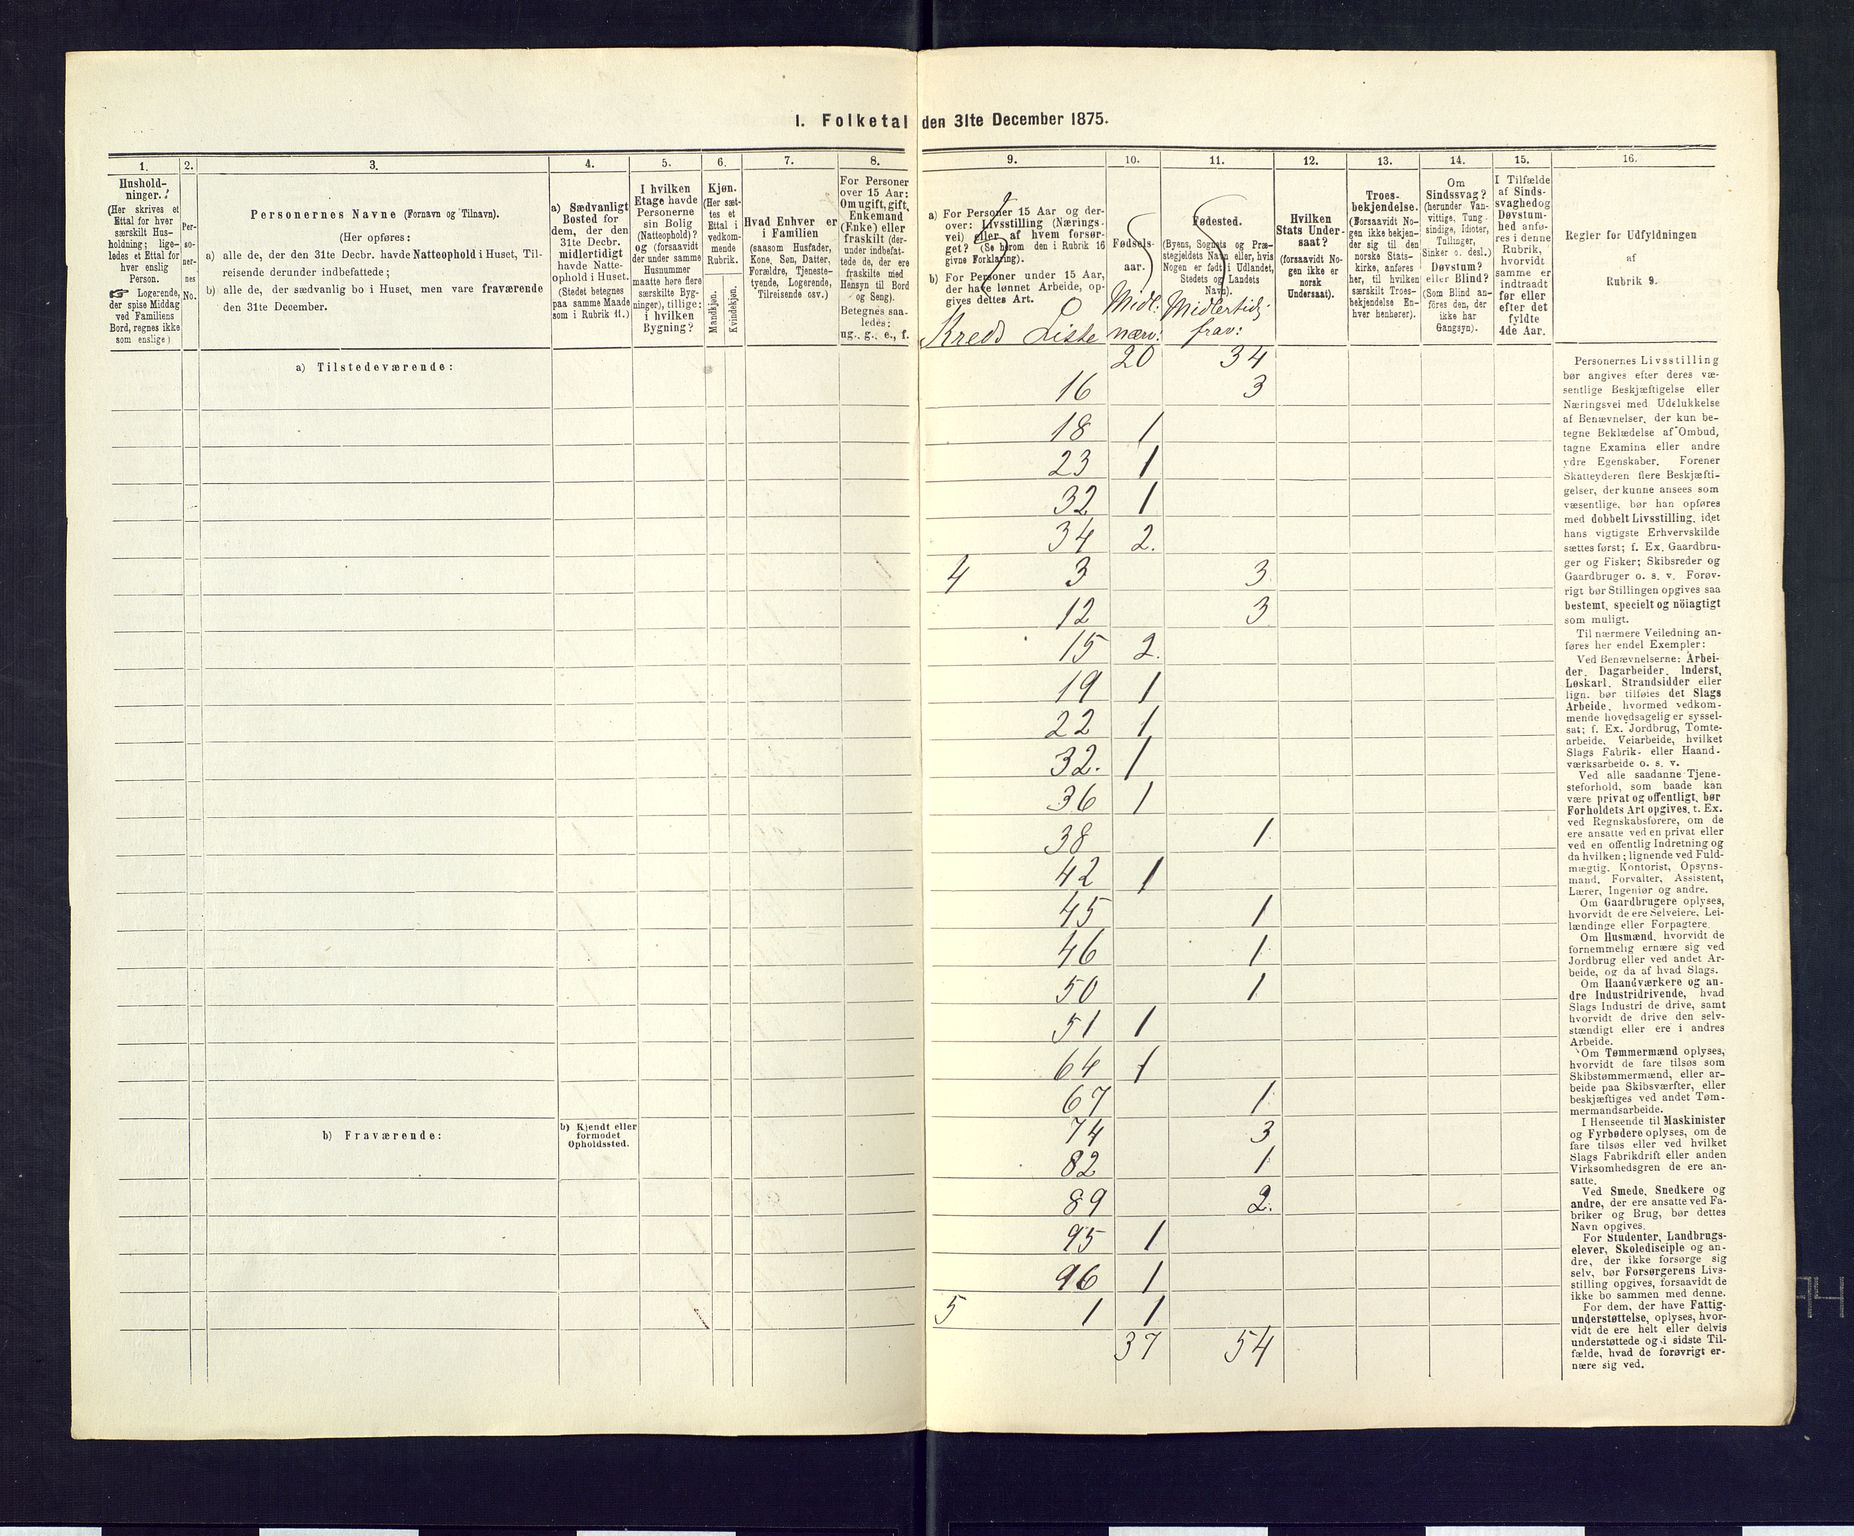 I. Folketal den 31te December 1875.
1.
2.
3.
4.
5.
6.
7.
8.
9.
10.
11.
12.
13.
14.
15.
16.
Hushold-
ninger.
(Her skrives et
Ettal for hver
særskilt Hus-
holdning; lige-
ledes et Ettal for
hver enslig
Person.
☞ Logerende,
der spise Middag
ved Familiens
Bord, regnes ikke
som enslige)
Per-
so-
ner-
nes
No.
Personernes Navne (Fornavn og Tilnavn).
(Her opføres:
a) alle de, der den 31te Decbr. havde Natteophold i Huset, Til-
reisende derunder indbefattede;
b) alle de, der sædvanlig bo i Huset, men vare fraværende
den 31te December.
a) Sædvanligt
Bosted for
dem, der den
31te Decbr.
midlertidigt
havde Natte-
ophold i Huset.
(Stedet betegnes
paa samme Maade
som i Rubrik 11.)
I hvilken
Etage havde
Personerne
sin Bolig
(Natteophold)?
og (forsaavidt
der under samme
Husnummer
maatte høre flere
særskilte Byg-
ninger), tillige:
i hvilken
Bygning?
Kjøn.
(Her sæt-
tes et
Ettal i
vedkom-
mende
Rubrik.
Mandkjøn.
Kvindekjøn.
Hvad Enhver er
i Familien
(saasom Husfader,
Kone, Søn, Datter,
Forældre, Tjeneste-
tyende, Logerende,
Tilreisende osv.)
For Personer
over 15 Aar:
Om ugift, gift,
Enkemand
(Enke) eller
fraskilt (der-
under indbefat-
tede de, der ere
fraskilte med
Hensyn til Bord
og Seng).
Betegnes saa-
ledes:
ug., g., e., f.
a) For Personer 15 Aar og der-
over: Livsstilling (Nærings-
vei) eller af hvem forsør-
get? (Se herom den i Rubrik 16
givne Forklaring).
b) For Personer under 15 Aar,
der have lønnet Arbeide, op-
gives dettes Art.
Kreds Liste
Fødsels-
aar.
Midl:
nærv:
Fødested.
(Byens, Sognets og Præ-
stegjeldets Navn eller, hvis
Nogen er født i Udlandet,
Stedets og Landets
Navn).
Midlertid:
frav:
Hvilken
Stats Under-
saat?
(forsaavidt No-
gen ikke er
norsk
Undersaat).
Troes-
bekjendelse.
(Forsaavidt No-
gen ikke bekjen-
der sig til den
norske Stats-
kirke, anføres
her, til hvilken
særskilt Troes-
bekjendelse En-
hver henhører).
Om
Sindssvag?
(herunder Van-
vittige, Tung-
sindige, Idioter,
Tullinger,
Sinker o. desl.)
Døvstum?
eller Blind?
(Som Blind an-
föres den, der
ikke har
Gangsyn).
I Tilfælde
af Sinds-
svaghed og
Døvstum-
hed anfø-
res i denne
Rubrik,
hvorvidt
samme er
indtraadt
før eller
efter det
fyldte
4de Aar.
Regler for Udfyldningen
af
Rubrik 9.
a) Tilstedeværende:
20 34
16 3
18 1
23 1
32 1
34 2.
4 3 3
12 3
15 2.
19 1
22 1
32. 1
36 1
38 1
42 1
45 1
46 1
50 1
51 1
64 1
67 1
74 3
82 1
89 2.
95 1
96 1
5 1 1
37 54
b) Fraværende:
b) Kjendt eller
formodet
Opholdssted.
Personernes Livsstilling
bør angives efter deres væ-
sentlige Beskjæftigelse eller
Næringsvei med Udelukkelse
af Benævnelser, der kun be-
tegne Beklædelse af Ombud,
tagne Examina eller andre
ydre Egenskaber. Forener
Skatteyderen flere Beskjæfti-
gelser, der kunne ansees som
væsentlige, bør han opføres
med dobbelt Livsstilling, idet
hans vigtigste Erhvervskilde
sættes først; f. Ex. Gaardbru-
ger og Fisker; Skibsreder og
Gaardbruger o. s. v. Forøv-
rigt bør Stillingen opgives saa
bestemt, specielt og nöiagtigt
som muligt.
Til nærmere Veiledning an-
føres her endel Exempler:
Ved Benævnelserne: Arbei-
der, Dagarbeider, Inderst,
Løskarl, Strandsidder eller
lign. bør tilføies det Slags
Arbeide, hvormed vedkom-
mende hovedsagelig er syssel-
sat; f. Ex. Jordbrug, Tomte-
arbeide, Veiarbeide, hvilket
Slags Fabrik- eller Haand-
værksarbeide o. s. v.
Ved alle saadanne Tjene-
steforhold, som baade kan
være privat og offentligt, bør
Forholdets Art opgives, t. Ex.
ved Regnskabsførere, om de
ere ansatte ved en privat eller
ved en offentlig Indretning og
da hvilken; lignende ved Fuld-
mægtig, Kontorist, Opsyns-
mand, Forvalter, Assistent,
Lærer, Ingeniør og andre.
Om Gaardbrugere oplyses,
hvorvidt de ere Selveiere, Lei-
lændinge eller Forpagtere.
Om Husmænd, hvorvidt de
fornemmelig ernære sig ved
Jordbrug eller ved andet Ar-
beide, og da af hvad Slags.
Om Haandværkere og an-
dre Industridrivende, hvad
Slags Industri de drive, samt
hvorvidt de drive den selv-
stændigt eller ere i andres
Arbeide.
Om Tømmermænd oplyses,
hvorvidt de fare tilsøs som
Skibstømmermænd, eller ar-
beide paa Skibsværfter, eller
beskjæftiges ved andet Tøm-
mermandsarbeide.
I Henseende til Maskinister
og Fyrbødere oplyses, om de
fare tilsøs eller ved hvilket
Slags Fabrikdrift eller anden
Virksomhedsgren de ere an-
satte.
Ved Smede, Snedkere og
andre, der ere ansatte ved Fa-
briker og Brug, bør dettes
Navn opgives.
For Studenter, Landbrugs-
elever, Skoledisciple og an-
dre, der ikke forsørge sig
selv, bør Forsørgerens Livs-
stilling opgives, forsaavidt de
ikke bo sammen med denne.
For dem, der have Fattig-
understøttelse, oplyses, hvor-
vidt de ere helt eller delvis
understøttede og i sidste Til-
fælde, hvad de forøvrigt er-
nære sig ved.